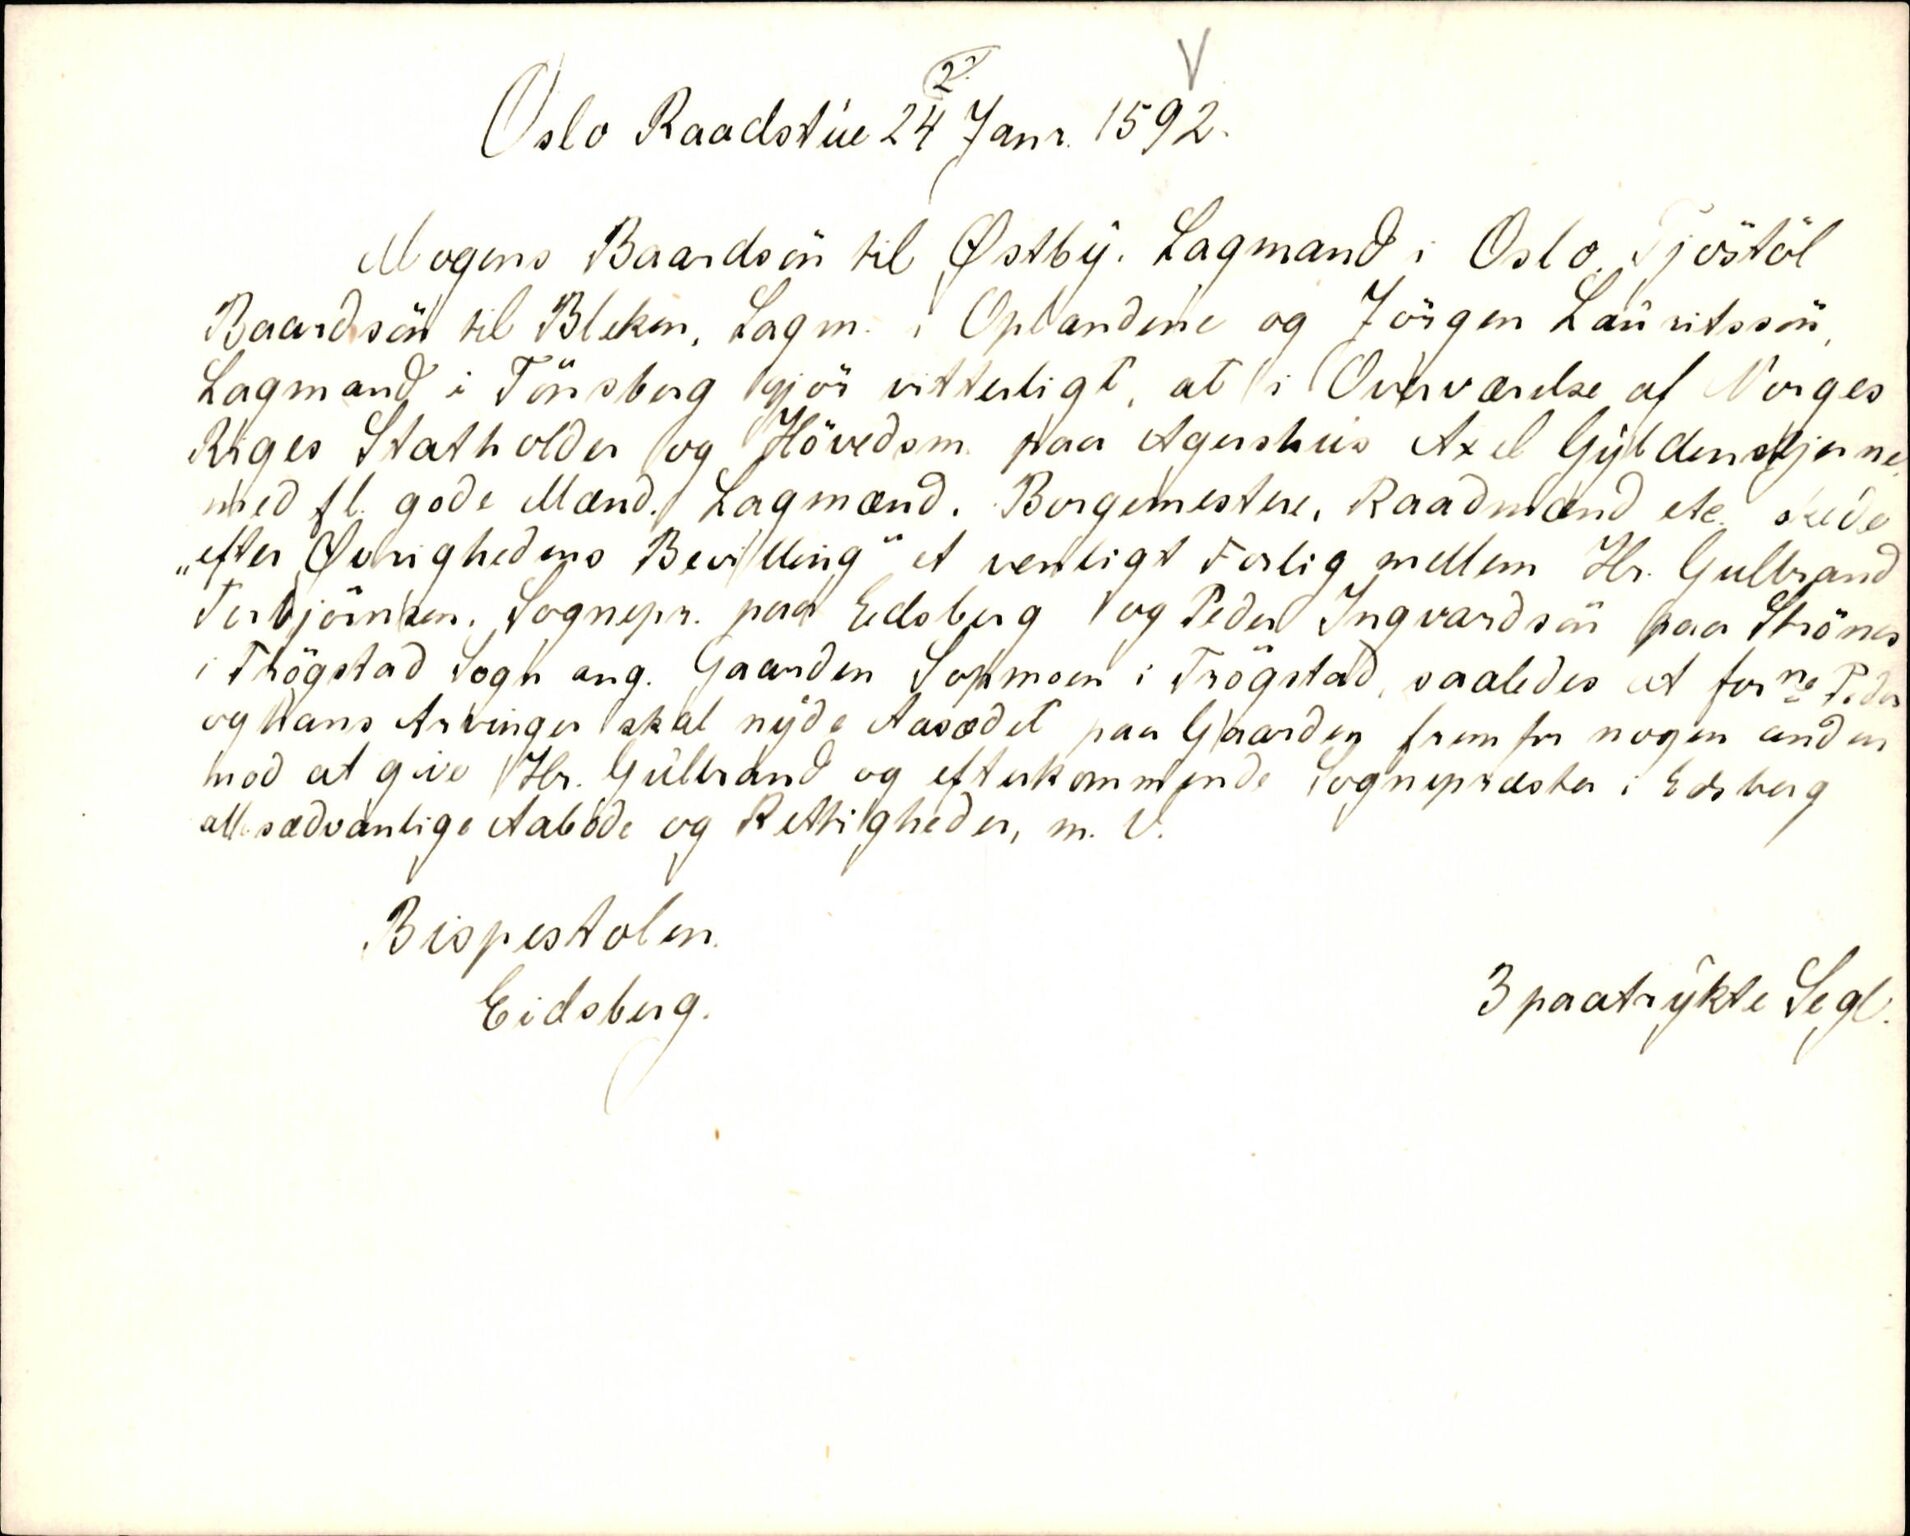 2.
V
Oslo Raadstue 24 Janr. 1592.
Mogens Baardsön til Østby. Lagmand i Oslo, Tjöstöl
Baardsön til Bleken, Lagm. i Oplandene og Jörgen Lauritssön,
Lagmand i Tönsberg gjör vitterligt, at i Overværelse af Norges
Riges Statholder og Hövedsm. paa Agershus Axel Gyldenstjerne
med fl. gode Mænd. Lagmænd. Borgemestere, Raadmænd etc. skede
„efter Øvrighedens Bevilling" et venligt Forlig mellem Hr. Gulbrand
Torbjörnsen. Sognepr. paa Eidsberg og Peder Ingvardsön paa Strönes
i Trögstad Sogn ang. Gaarden Sopmoen i Trögstad, saaledes at forne Peder
og hans Arvinger skal nyde Aasædet paa Gaarden fremfor nogen anden
mod at give Hr. Gulbrand og efterkommende Sognepræster i Edsberg
all sædvanlige Aabode og Rettigheder, m. V.
Bispestolen.
Eidsberg.
3 paatrykte Segl.